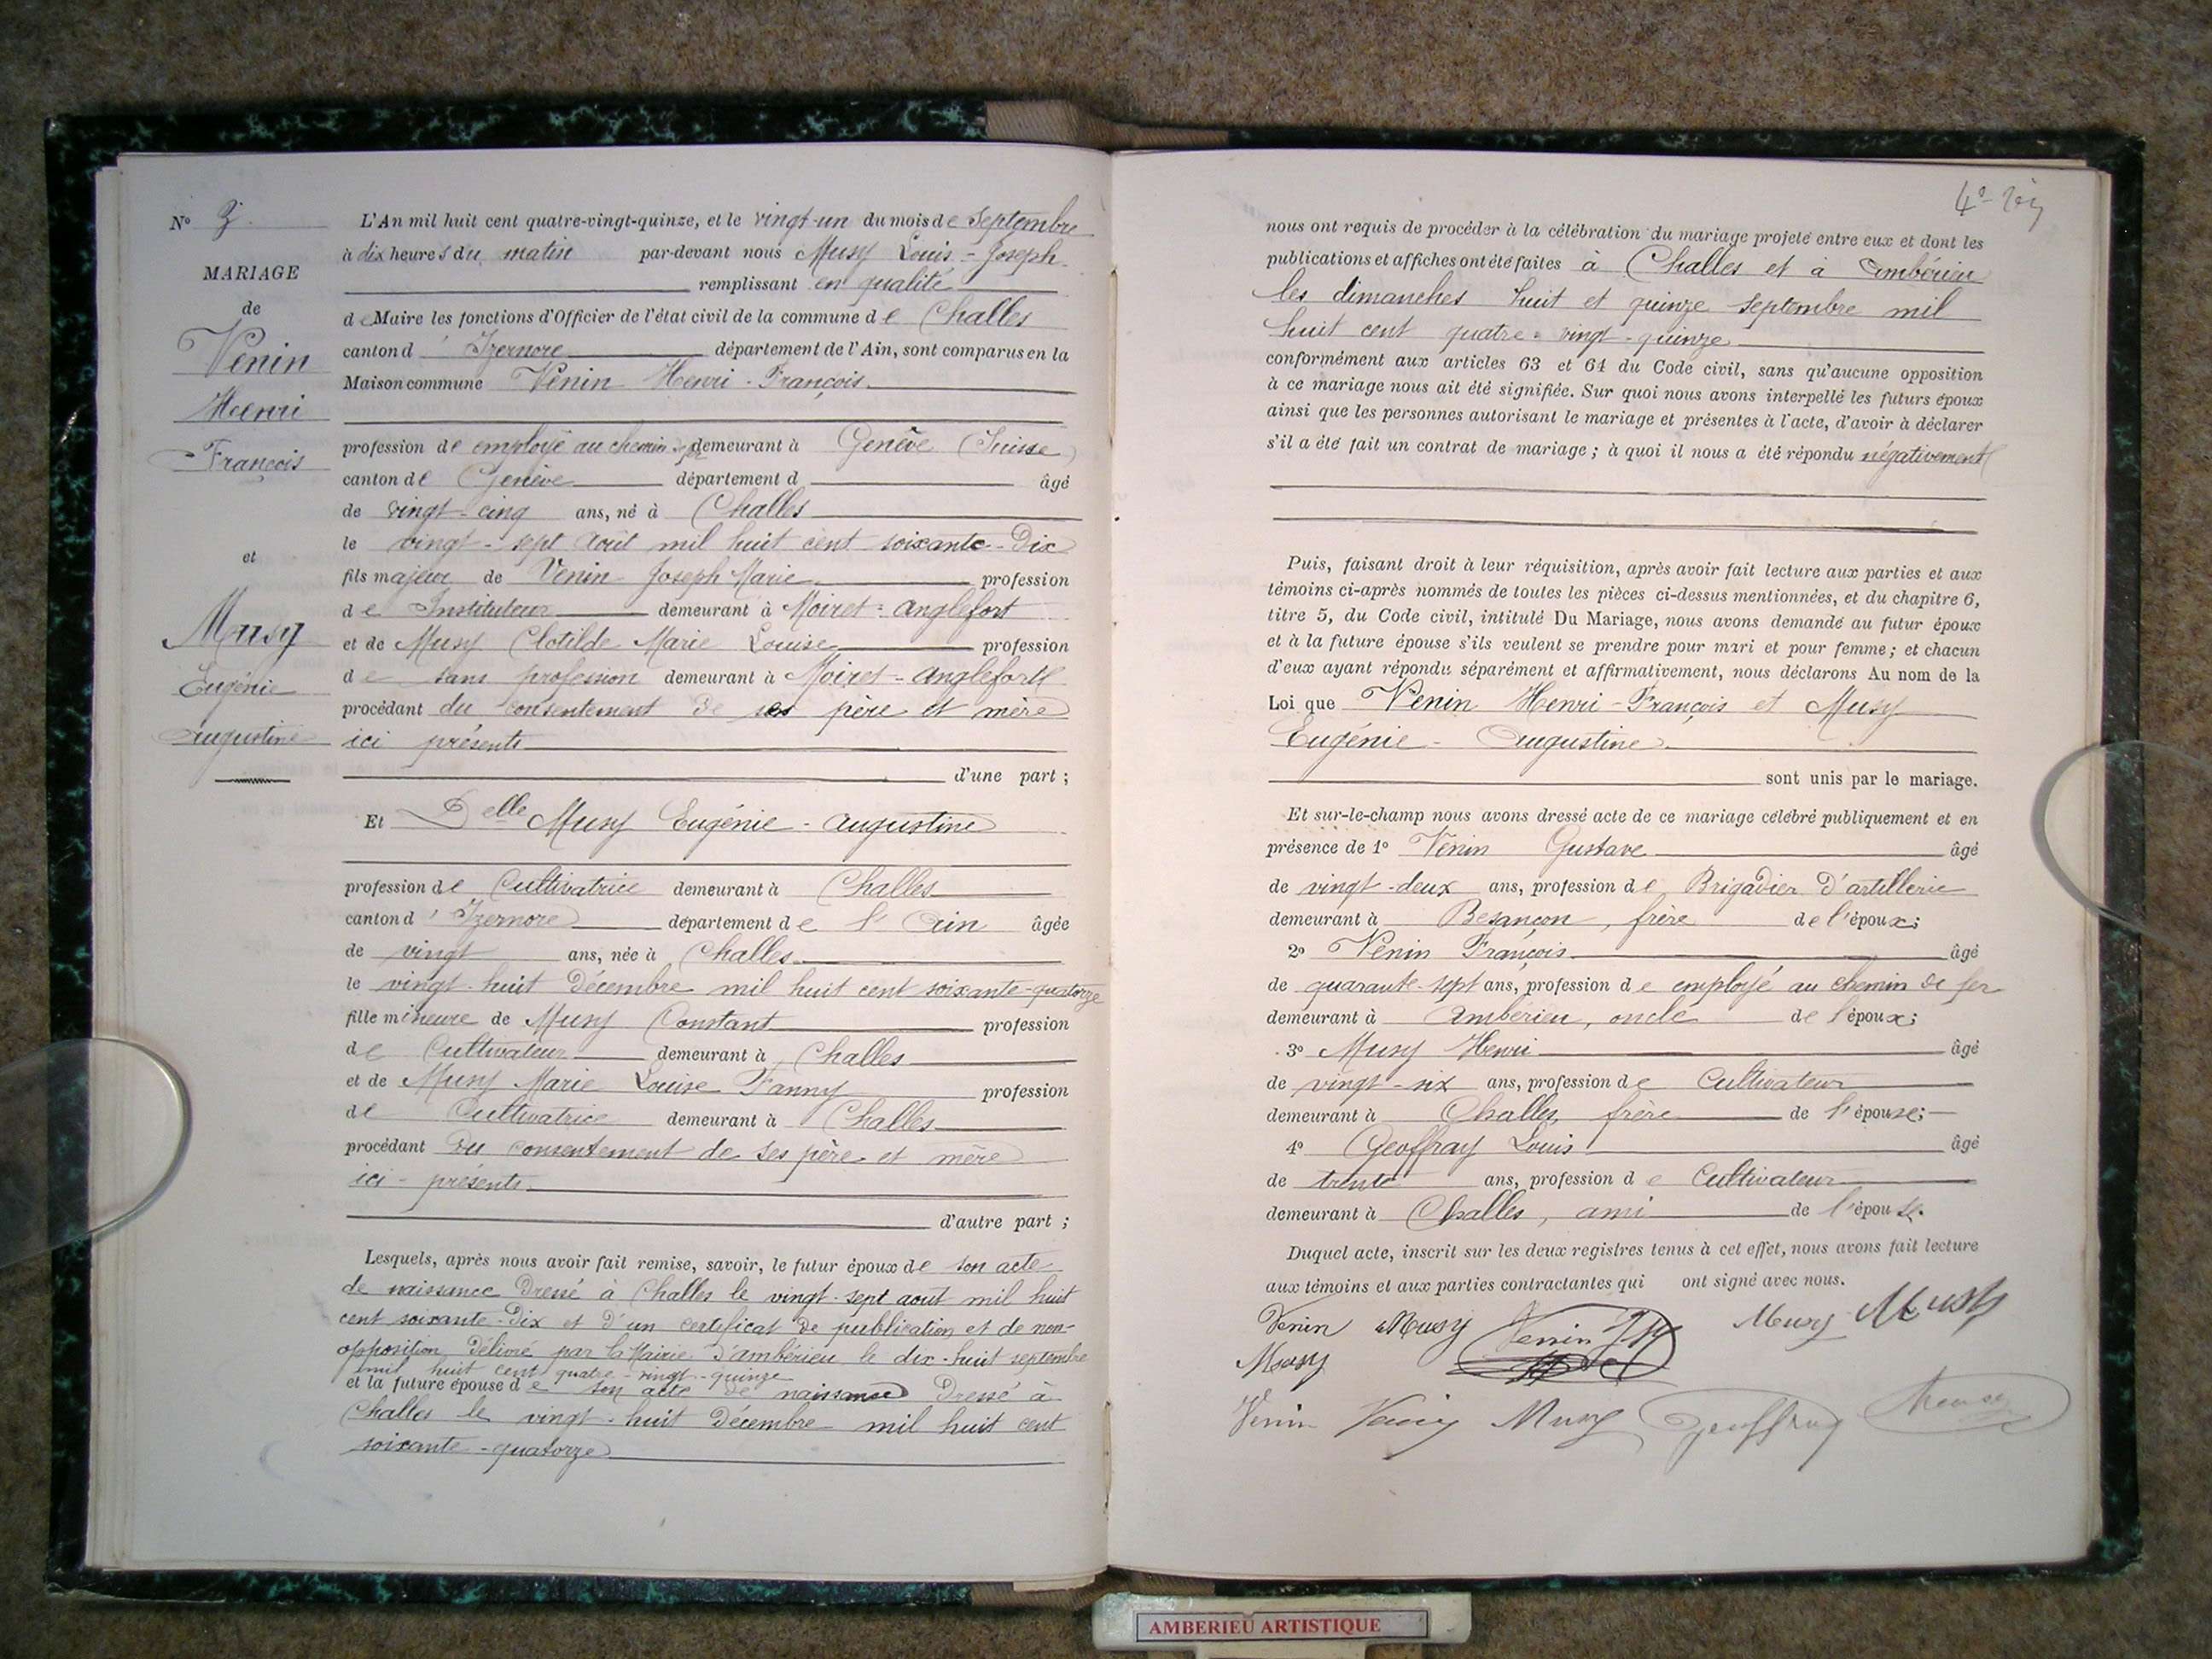 N° 3.
MARIAGE
de
Venin
Henri
François
et
Musy
Eugénie
Augustine
L'An mil huit cent quatre-vingt-quinze, et le vingt-un du mois de Septembre
à dix heures du matin par-devant nous Musy Louis-Joseph
remplissant en qualité
de Maire les fonctions d'Officier de l'état civil de la commune de Challes
canton d'Izernore département de l'Ain, sont comparus en la
Maison commune Venin Henri-François.
profession de employé au chemin de fer demeurant à Genève (Suisse)
canton de Genève département d âgé
de vingt-cinq ans, né à Challes
le vingt-sept août mil huit cent soixante-Dix
fils majeur de Venin Joseph Marie profession
de Instituteur demeurant à Moiret-Anglefort
et de Musy Clotilde Marie Louise profession
de sans profession demeurant à Moiret-Anglefort
procédant du consentement de ses père et mère
ici présents
d'une part ;
Et Delle Musy Eugénie-Augustine
profession de Cultivatrice demeurant à Challes
canton d'Izernore département de l'Ain âgée
de vingt ans, née à Challes
le vingt-huit Décembre mil huit cent soixante-quatorze
fille mineure de Musy Constant profession
de Cultivateur demeurant à Challes
et de Musy Marie Louise Fanny profession
de Cultivatrice demeurant à Challes
procédant du consentement de ses père et mère
ici-présents
d'autre part ;
Lesquels, après nous avoir fait remise, savoir, le futur époux de son acte
de naissance Dressé à Challes le vingt-sept août mil huit
cent soixante-Dix et d'un certificat de publication et de non-
opposition délivré par la Mairie d'ambérieu le dix-huit septembre
mil huit cent quatre-vingt-quinze
et la future épouse de son acte de naissance Dressé à
Challes le vingt-huit Décembre mil huit cent
soixante-quatorze
nous ont requis de procéder à la célébration du mariage projeté entre eux et dont les
publications et affiches ont été faites à Challes et à Ambérieu
les dimanches huit et quinze septembre mil
huit cent quatre-vingt-quinze
conformément aux articles 63 et 64 du Code civil, sans qu'aucune opposition
à ce mariage nous ait été signifiée. Sur quoi nous avons interpellé les futurs époux
ainsi que les personnes autorisant le mariage et présentes à l'acte, d'avoir à déclarer
s'il a été fait un contrat de mariage ; à quoi il nous a été répondu négativement
Puis, faisant droit à leur réquisition, après avoir fait lecture aux parties et aux
témoins ci-après nommés de toutes les pièces ci-dessus mentionnées, et du chapitre 6,
titre 5, du Code civil, intitulé Du Mariage, nous avons demandé au futur époux
et à la future épouse s'ils veulent se prendre pour mari et pour femme ; et chacun
d'eux ayant répondu séparément et affirmativement, nous déclarons Au nom de la
Loi que Venin Henri-François et Musy
Eugénie-Augustine
sont unis par le mariage.
Et sur-le-champ nous avons dressé acte de ce mariage célébré publiquement et en
présence de 1° Venin Gustave âgé
de vingt-deux ans, profession de Brigadier D'artillerie
demeurant à Besançon, frère de l'époux ;
2° Venin François âgé
de quarante-sept ans, profession de employé au chemin de fer
demeurant à Ambérieu, oncle de l'époux ;
3° Musy Henri âgé
de vingt-six ans, profession de Cultivateur
demeurant à Challes, frère de l'épouse ;
4° Geoffray Louis âgé
de trente ans, profession de Cultivateur
demeurant à Challes, ami de l'épouse.
Duquel acte, inscrit sur les deux registres tenus à cet effet, nous avons fait lecture
aux témoins et aux parties contractantes qui ont signé avec nous.
Venin Musy Venin Musy Musy
Musy
Venin Venin Musy Geoffray Musy
AMBERIEU ARTISTIQUE